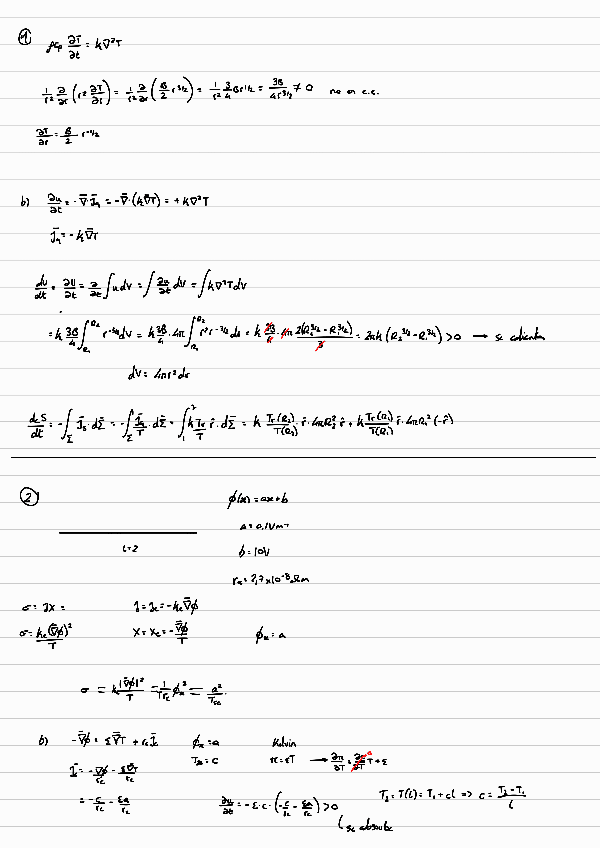 1
ρcp ∂T/∂t = k∇²T
1/r² ∂/∂r (r² ∂T/∂r) = 1/r² ∂/∂r (B/2 r^3/2) = 1/r² 3/4 B r^1/2 = 3B/4r^3/2 ≠ 0 no es c.e.
∂T/∂r = B/2 r^-1/2
b) ∂u/∂t = -∇̄·J̄q = -∇̄·(k∇̄T) = +k∇²T
J̄q = -k∇̄T
dU/dt = ∂U/∂t = ∂/∂t ∫u dV = ∫∂u/∂t dV = ∫k∇²T dV
= k 3B/4 ∫_R₁^R₂ r^-3/2 dV = k 3B/4 · 4π ∫_R₁^R₂ r² r^-3/2 dr = k 3B/4 · 4π 2(R₂^3/2 - R₁^3/2)/3 = 2πk (R₂^3/2 - R₁^3/2) > 0 → se calienta
dV = 4πr² dr
deS/dt = -∫_Σ J̄s·dΣ̄ = -∫_Σ J̄q/T·dΣ̄ = ∫₁² k Tr/T r̂·dΣ̄ = k Tr(R₂)/T(R₂) r̂·4πR₂² r̂ + k Tr(R₁)/T(R₁) r̂·4πR₁² (-r̂)
2)
φ(x) = ax+b
a = 0,1 Vm⁻¹
L=2
b = 10V
re = 2,7 x10⁻⁸ Ωm
σ = JX =
J = Je = -ke∇̄φ
σ = ke(∇̄φ)²/T
X = Xe = -∇̄φ/T
φx = a
σ = k|∇̄φ|²/T = 1/Tre φx² = a²/Tre
b) -∇̄φ = ε∇̄T + re J̄e
φx = a
Kelvin
Tx = c
π = εT → ∂π/∂T = ∂ε/∂T T + ε
J̄ = -∇̄φ/re - ε∇̄T/re
= -c/re - εa/re
∂u/∂t = -ε·c·(-c/re - εa/re) > 0
T₂ = T(L) = T₁ + cL => c = T₂-T₁/L
se absorbe